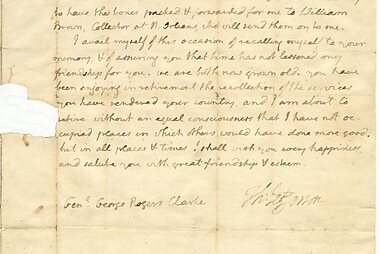 to have the bones packed & forwarded for me to William
Brown, Collector at N. Orleans, who will send them on to me.
I avail myself of this occasion of recalling myself to your
memory & of assuring you that time has not lessened my
friendship for you. we are both now grown old. you have
been enjoying in retirement the recollection of the services
you have rendered your country, and I am about to
retire without an equal consciousness that I have not oc-
cupied places in which others would have done more good.
but in all places & times I shall wish you every happiness
and salute you with great friendship & esteem.
Genl. George Rogers Clarke
Th: Jefferson